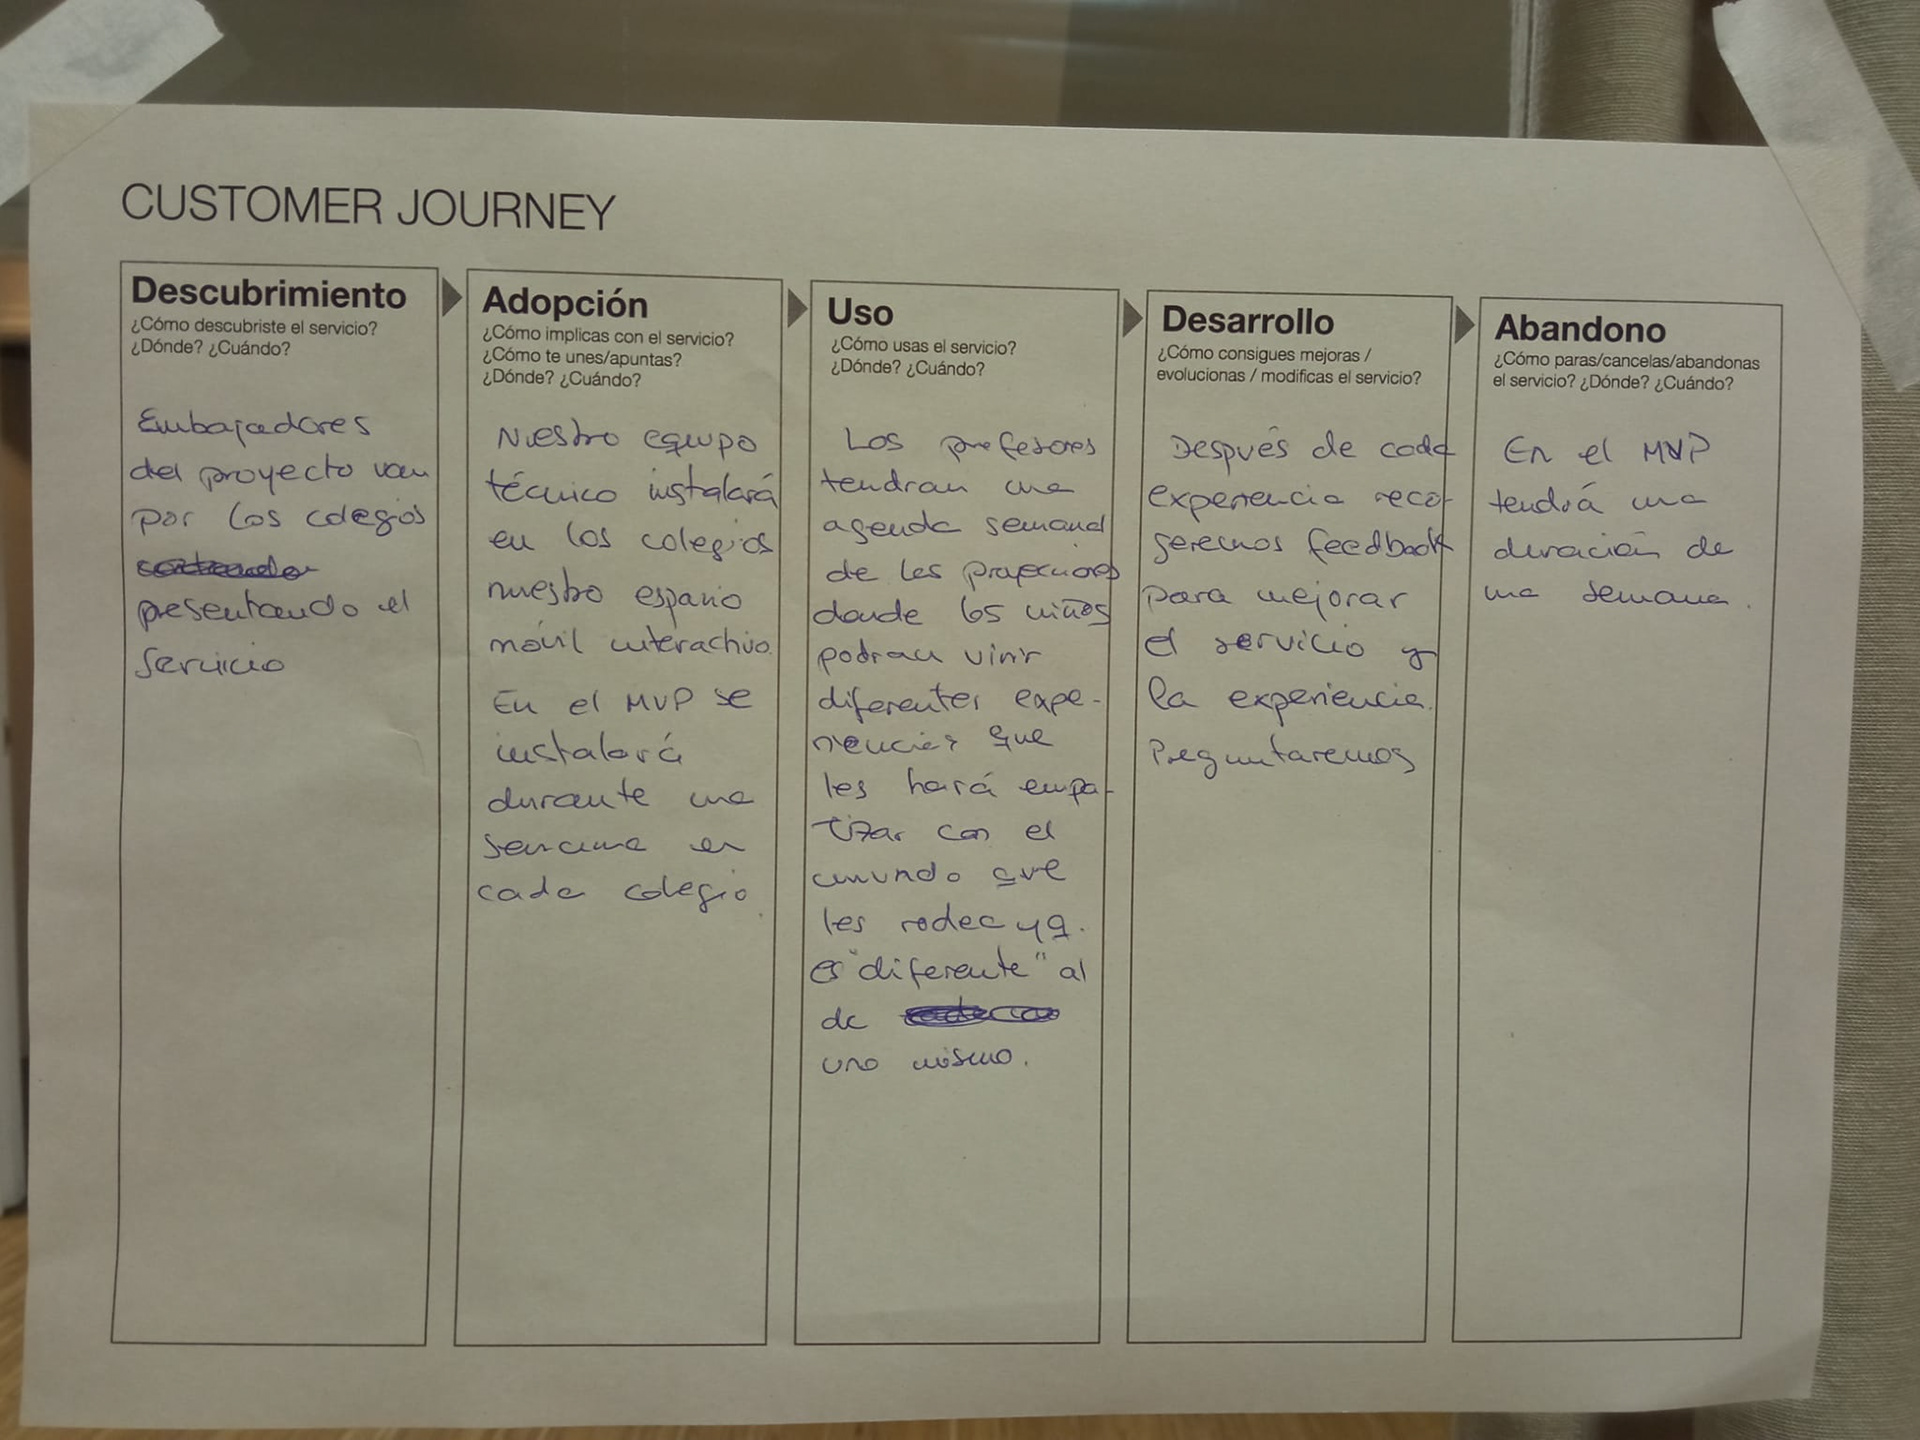 CUSTOMER JOURNEY
Descubrimiento
¿Cómo descubriste el servicio?
¿Dónde? ¿Cuándo?
Embajadores
del proyecto van
por los colegios
presentando el
servicio
Adopción
¿Cómo implicas con el servicio?
¿Cómo te unes/apuntas?
¿Dónde? ¿Cuándo?
Nuestro equipo
técnico instalará
en los colegios
nuestro espacio
móvil interactivo.
En el MVP se
instalará
durante una
semana en
cada colegio.
Uso
¿Cómo usas el servicio?
¿Dónde? ¿Cuándo?
Los profesores
tendran una
agenda semanal
de las proyecciones
donde los niños
podran vivir
diferentes expe-
riencias que
les hará empa-
tizar con el
mundo que
les rodea y q.
es "diferente" al
de
uno mismo.
Desarrollo
¿Cómo consigues mejoras /
evolucionas / modificas el servicio?
Después de cada
experiencia reco-
geremos feedback
para mejorar
el servicio y
la experiencia.
Preguntaremos
Abandono
¿Cómo paras/cancelas/abandonas
el servicio? ¿Dónde? ¿Cuándo?
En el MVP
tendrá una
duración de
una semana.